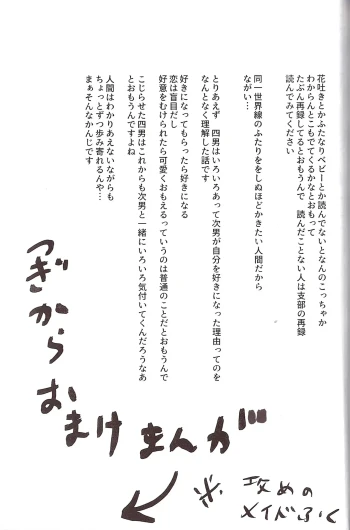 花吐きとかふたなりベビーとか読んでないとなんのこっちゃか
わからんとこもでてくるかなとおもって
たぶん再録してるとおもうんで　読んだことない人は支部の再録
読んでみてください
同一世界線のふたりををしぬほどかきたい人間だから
ながい…
とりあえず　四男はいろいろあって次男が自分を好きになった理由ってのを
なんとなく理解した話です
好きになってもらったら好きになる
恋は盲目だし
好意をむけられたら可愛くおもえるっていうのは普通のことだとおもうんで
こじらせた四男はこれからも次男と一緒にいろいろ気付いてくんだろうなあ
とおもうんですよね
人間はわかりあえないながらも
ちょっとずつ歩み寄れるんや…
まぁそんなかんじです
つぎから
おまけまんが
※攻めの
メイドふく